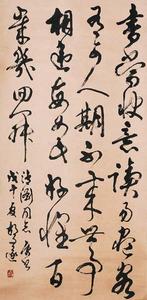 書當快意讀易盡客
有可人期不來世事
相違每如此好懷百
歲幾回開
同志
戊午夏